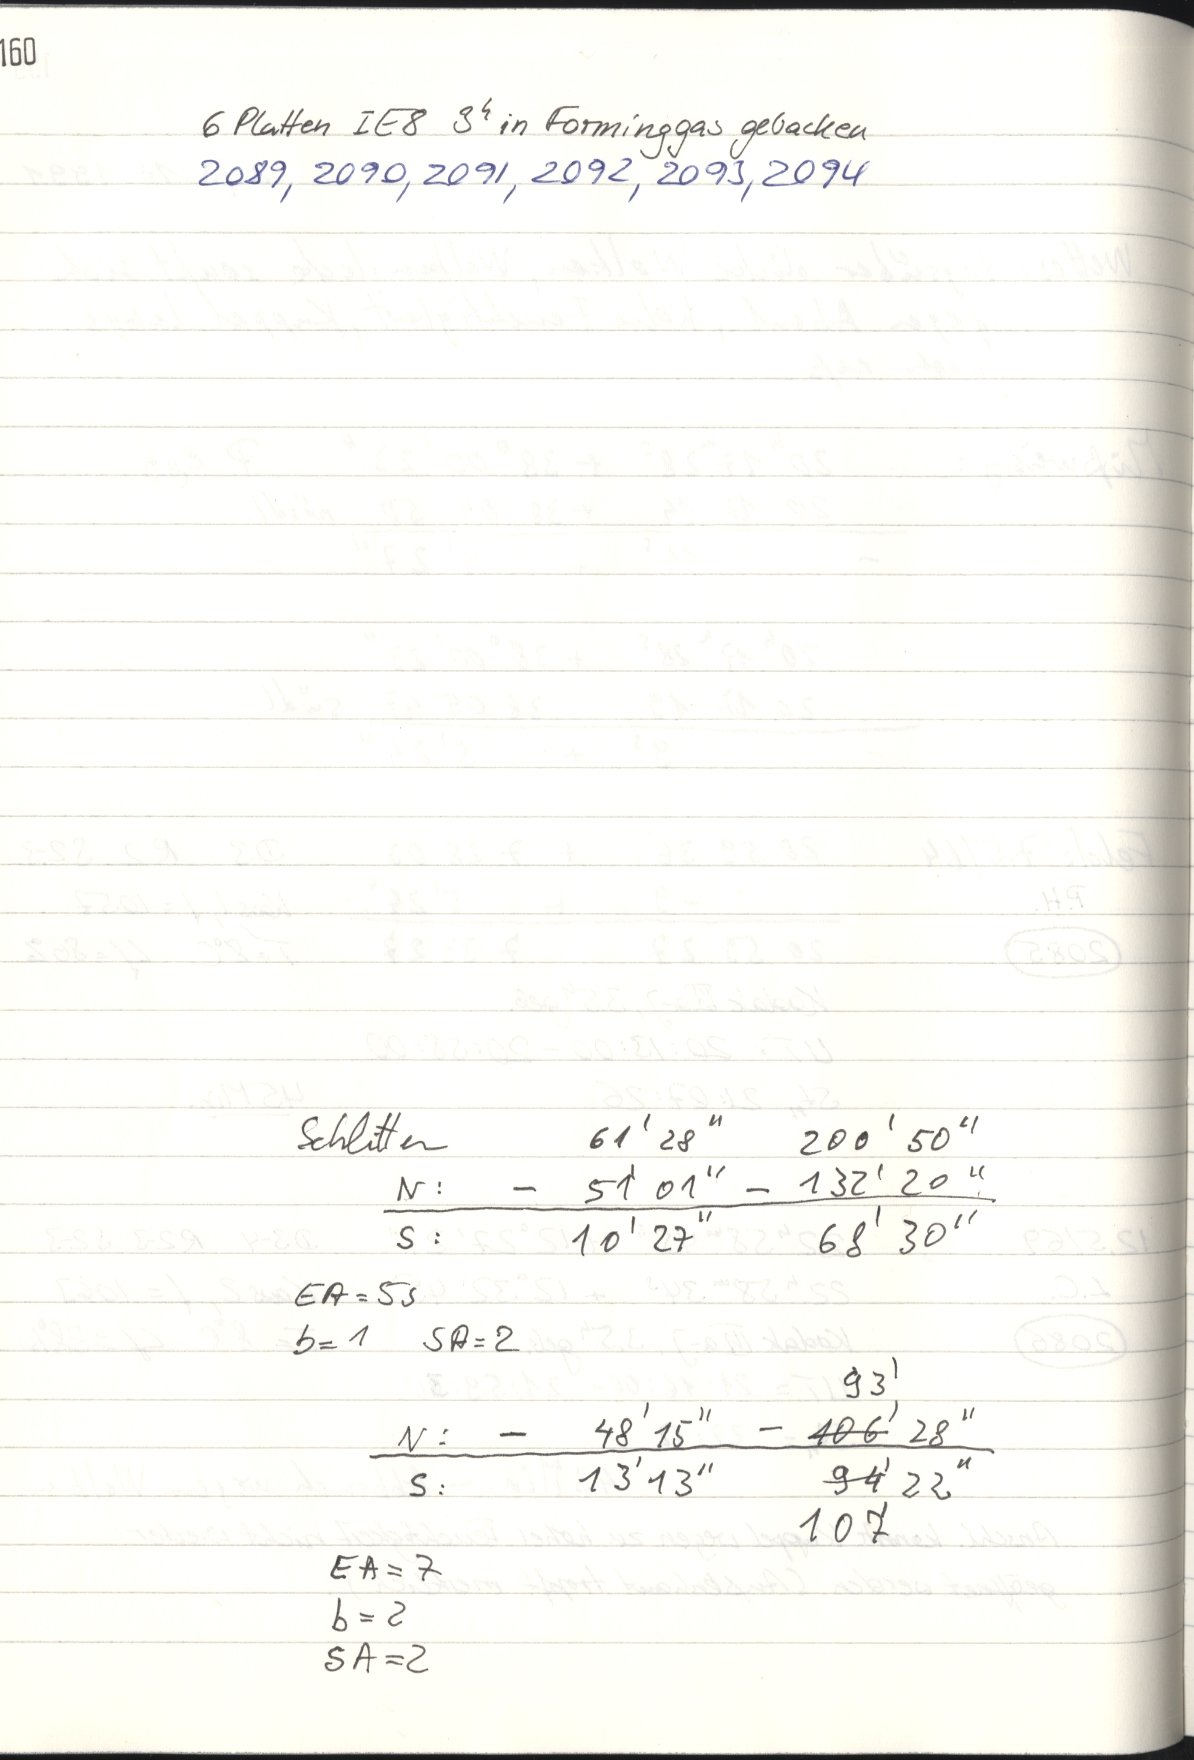 160
6 Platten IE8 3h in Forminggas gebacken
2089, 2090, 2091, 2092, 2093, 2094
Schlitten 61' 28" 200' 50"
N: - 51' 01" - 132' 20"
S: 10' 27" 68' 30"
EA = 5s
b = 1 SA = 2
93'
N: - 48' 15" - 106' 28"
S: 13' 13" 94' 22"
107
EA = 7
b = 2
SA = 2